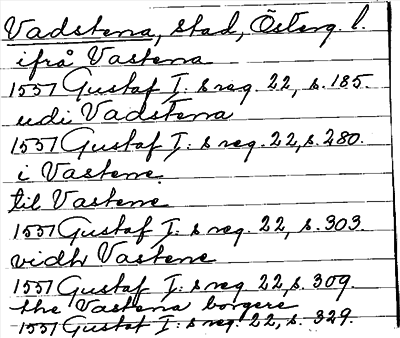 Vadstena, stad, Österg. l.
ifrå Vastena
1557 Gustaf I:s reg. 22, s. 185.
udi Vadstena
1557 Gustaf I:s reg. 22, s. 280.
i Vastene
til Vastene
1557 Gustaf I:s reg. 22, s. 303.
vidh Vastene
1557 Gustaf I:s reg 22, s. 309.
the Vastena borgere
1557 Gustaf I:s reg. 22, s. 329.